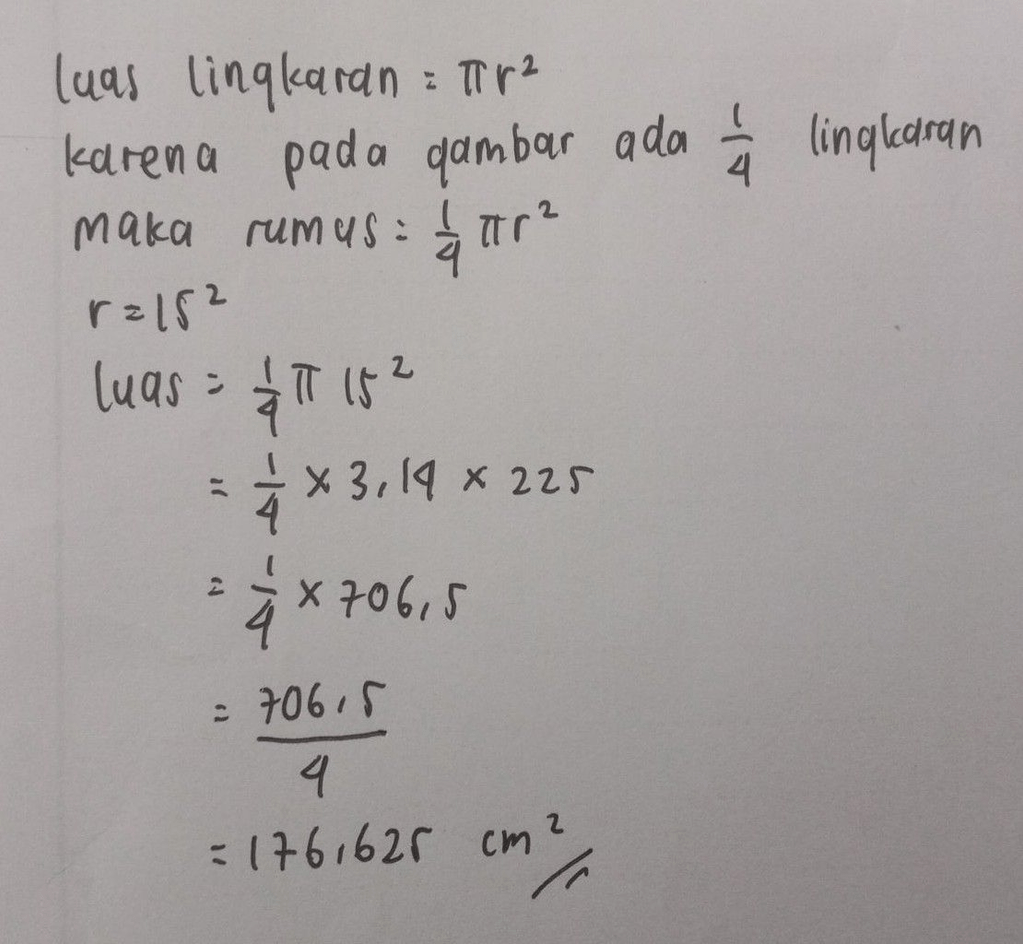 luas lingkaran = πr²
karena pada gambar ada 1/4 lingkaran
maka rumus = 1/4 πr²
r = 15²
luas = 1/4 π 15²
= 1/4 × 3,14 × 225
= 1/4 × 706,5
= 706,5/4
= 176,625 cm²